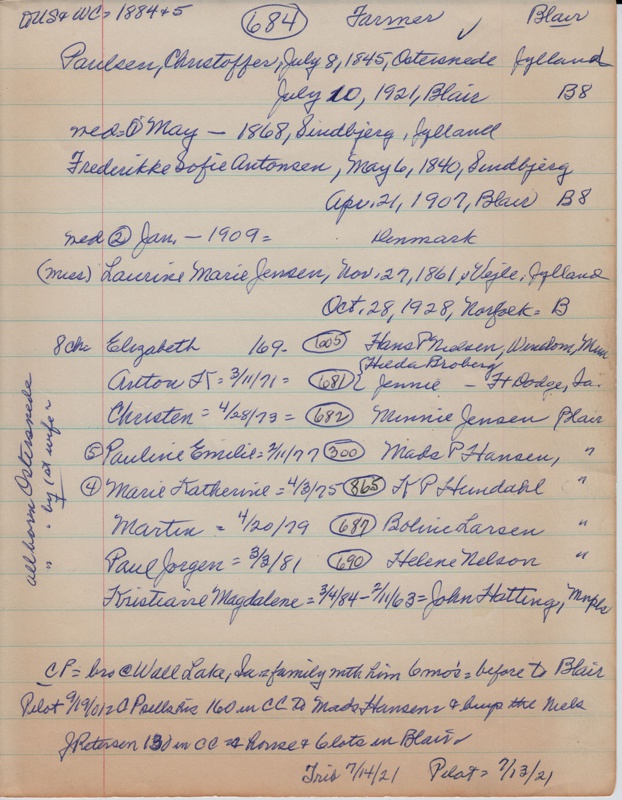 to US & WC = 1884 & 5 684 Farmer ✓ Blair
Paulsen, Christoffer, July 8, 1845, Ostersnede Jylland
July 10, 1921, Blair B8
med = ① May — 1868, Sindbjerg, Jylland
Frederikke Sofie Antonsen, May 6, 1840, Sindbjerg
Apr. 21, 1907, Blair B8
med ② Jan. — 1909 = Denmark
(Mrs) Laurine Marie Jensen, Nov. 27, 1861, Vejle, Jylland
Oct. 28, 1928, Norfolk = B
8 ch: Elizabeth 169 - 605 Hans P Nielsen, Windom, Minn
Anton K = 3/11/71 = 681 { Hilda Broberg
Jennie - Ft Dodge, Ia.
Christen = 4/28/73 = 682 Minnie Jensen Blair
⑤ Pauline Emilie = 2/11/77 300 Mads P Hansen, "
④ Marie Katherine = 4/3/75 865 K P Hundahl "
Martin = 4/20/79 687 Boline Larsen "
Paul Jorgen = 3/3/81 690 Helene Nelson "
Kristiane Magdalene = 3/4/84 - 2/11/63 = John Hatting, Mnpls
all born Ostersnede
" " by 1st wife ~
CP = bro @ Wall Lake, Ia = family with him 6 mo's = before to Blair
Pilot 9/19/012 CP sells his 160 in CC to Mads Hansen & buys the Niels
J Petersen 130 in CC = & house & 6 lots in Blair
Trib 7/14/21 Pilot = 7/13/21